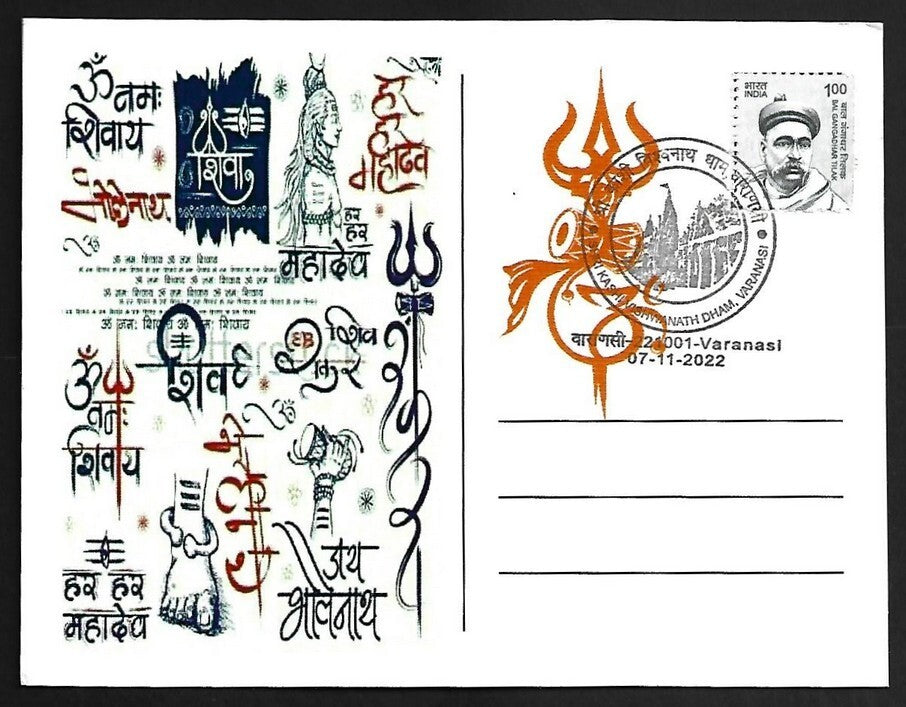 ॐ नमः
शिवाय
शिवा
हर
हर
महादेव
भोलेनाथ
हर
हर
महादेव
ॐ
ॐ नमः शिवाय ॐ नमः शिवाय
ॐ नमः शिवाय ॐ नमः शिवाय
ॐ नमः शिवाय ॐ नमः शिवाय
ॐ नमः शिवाय ॐ नमः शिवाय
शिव
शिव
ॐ
नमः
शिवाय
ॐ
हर हर
महादेव
जय
भोलेनाथ
भारत
INDIA
1.00
BAL GANGADHAR TILAK
बाल गंगाधर तिलक
श्री काशी विश्वनाथ धाम, वाराणसी
SHRI KASHI VISHWANATH DHAM, VARANASI
वाराणसी-221001-Varanasi
07-11-2022